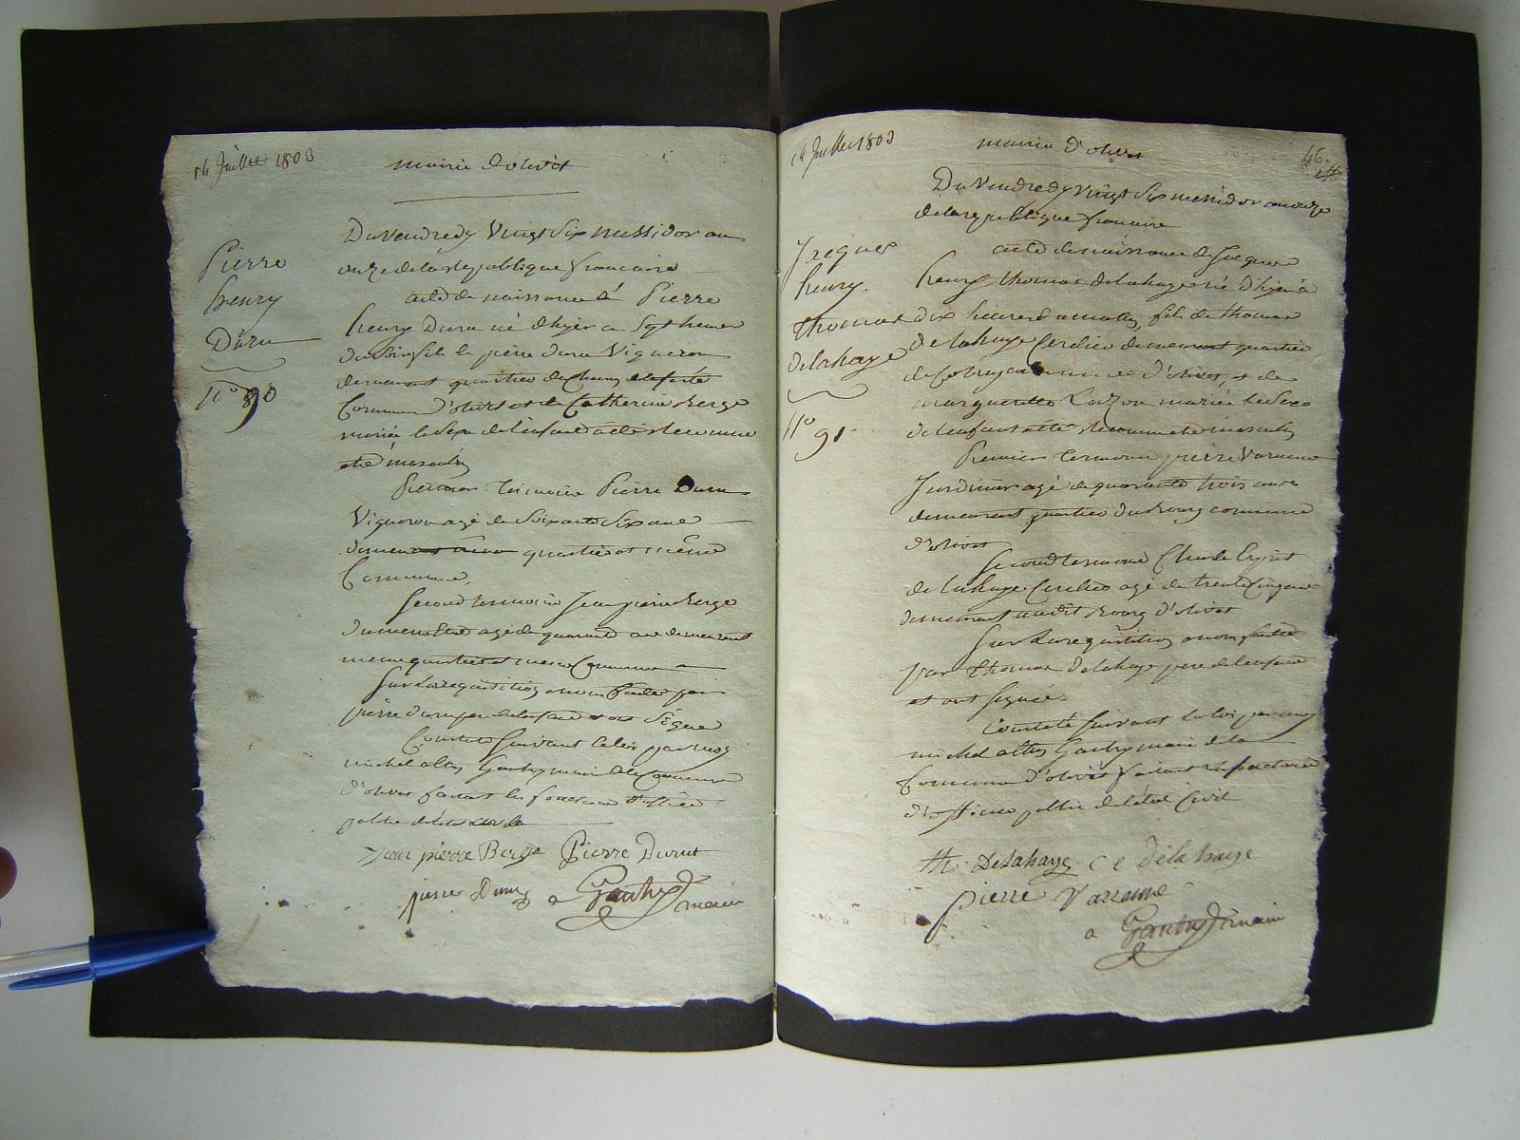 14 Juillet 1803
mairie d'olivet
Pierre
henry
Duru
N° 90
Du vendredy vingt Six messidor an
onze de la République francaise
acte de naissance de Pierre
henry Duru né d'hyer a Sept heures
du Soir fils de pierre duru Vigneron
demeurant quartier de
Commune d'olivet et de Catherine Berge
mariés le Sexe de l'enfant a été reconnu
etre masculin
Premier temoin Pierre Duru
Vigneron agé de Soixante Six ans
demeurant quartier et même
Commune,
Second temoin Jean pierre Berge
agé de quarante ans demeurant
meme quartier et meme Commune
Sur la requisition a nous faite par
pierre duru pere de l'enfant et ont Signé
Constaté Suivant la loi par moy
michel Gautry maire de la Commune
d'olivet faisant les fonctions d'officier
public de l'etat civil
Jean pierre Berge Pierre Durut
pierre Duru a Gautry maire
14 Juillet 1803
mairie d'olivet
46
Jacques
henry
Thomas
delahaye
N° 91
Du Vendredy Vingt Six messidor an onze
de la republique francaise
acte de naissance de Jacques
henry thomas delahaye né d'hyer à
dix heures du matin, fils de thomas
de lahaye Cerclier demeurant quartier
de commune d'olivet, et de
margueritte mariés le Sexe
de l'enfant a été reconnu etre masculin
Premier temoin pierre Varenne
Jardinier agé de quarante trois ans
demeurant quartier du Bourg commune
d'olivet
Second temoin Charle
de lahaye Cerclier agé de trente cinq ans
demeurant audit Bourg d'olivet
Sur la requisition a nous faite
par thomas delahaye pere de l'enfant
et ont Signé.
Constaté Suivant la loi par moy
michel Gautry maire de la
Commune d'olivet faisant les fonctions
d'officier public de l'état Civil
th. Delahaye c e delahaye
pierre Varenne
a Gautry maire